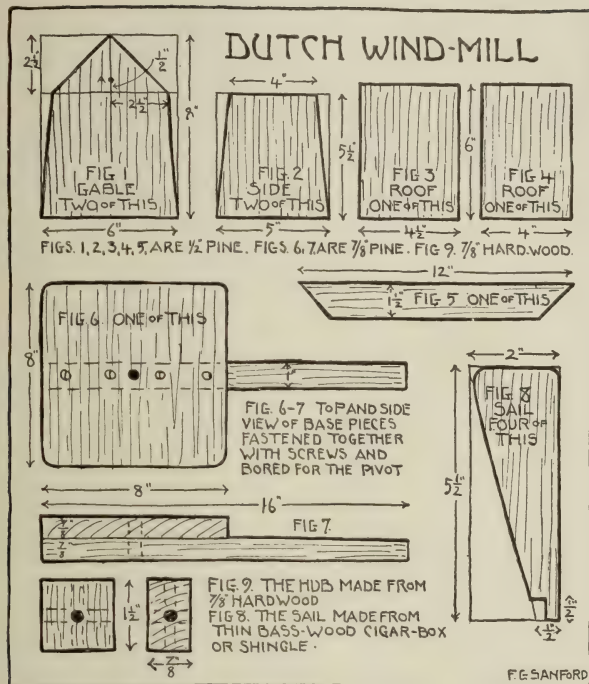 DUTCH WIND-MILL
2½"
½"
2½"
8"
FIG 1
GABLE
TWO OF THIS
6"
4"
5½"
FIG. 2
SIDE
TWO OF THIS
5"
FIG 3
ROOF
ONE OF THIS
4½"
6"
FIG 4
ROOF
ONE OF THIS
4"
FIGS. 1, 2, 3, 4, 5, ARE ½" PINE. FIGS. 6, 7, ARE ⅞" PINE. FIG 9. ⅞" HARD-WOOD.
12"
1½"
FIG 5 ONE OF THIS
FIG 6. ONE OF THIS
8"
1"
8"
FIG. 6-7 TOP AND SIDE
VIEW OF BASE PIECES
FASTENED TOGETHER
WITH SCREWS AND
BORED FOR THE PIVOT
16"
FIG 7.
⅞"
⅞
2"
FIG 8
SAIL
FOUR OF
THIS
5½"
½"
½"
1½"
⅞"
FIG. 9. THE HUB MADE FROM
⅞" HARDWOOD
FIG 8. THE SAIL MADE FROM
THIN BASS-WOOD CIGAR-BOX
OR SHINGLE.
F.G. SANFORD